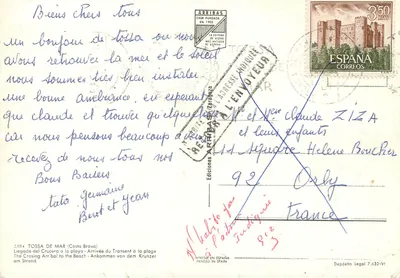 Biens chers tous
un bonjour de tossa ou nous
avons retrouvé la mer et le soleil
nous sommes très bien installés
une bonne ambiance, en espérant
que claude et trouvé quelque chose
car nous pensons beaucoup à
recevez de nous tous nos
Bons Baisers
tata germaine
et Jean
2.984 TOSSA DE MAR (Costa Brava)
Llegada del Crucero a la playa - Arrivée du Transant à la plage
The Crossing Arrival to the Beach - Ankommen von dem Kreuzer
am Strand
ARRIBAS
RETOUR A L'ENVOYEUR
3,50
ESPAÑA
CORREOS
Mr et Mme Claude ZIZA
et leurs enfants
11 Square Hélène Boucher
92 Orly
France
N'habite pas
à l'adresse
indiquée
Depósito Legal